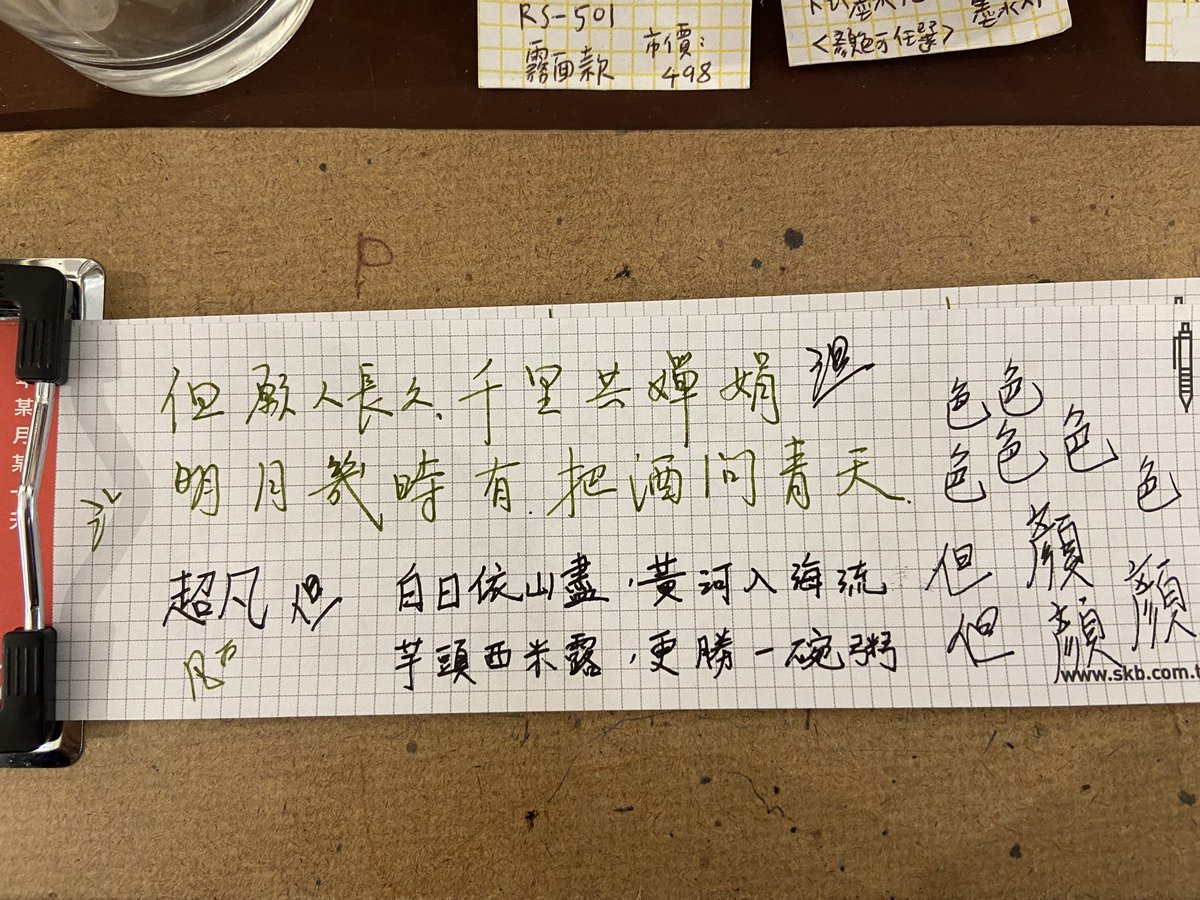 RS-501
霧面款 市價:
498
墨水
<顏色可任選>
P
但願人長久,千里共嬋娟
明月幾時有.把酒問青天.
超凡 但
白日依山盡,黃河入海流
芋頭西米露,更勝一碗粥
色色
色色色
色
但 顏
但 顏 顏
www.skb.com.t
某月某